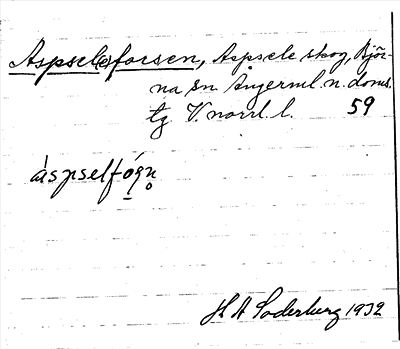 Aspsel(e)forsen, Aspsele skog, Björ-
na sn Ångerml. n. doms.
tg V. norrl. l. 59
áspselfó̱ꞃn̥
H A Söderberg 1932